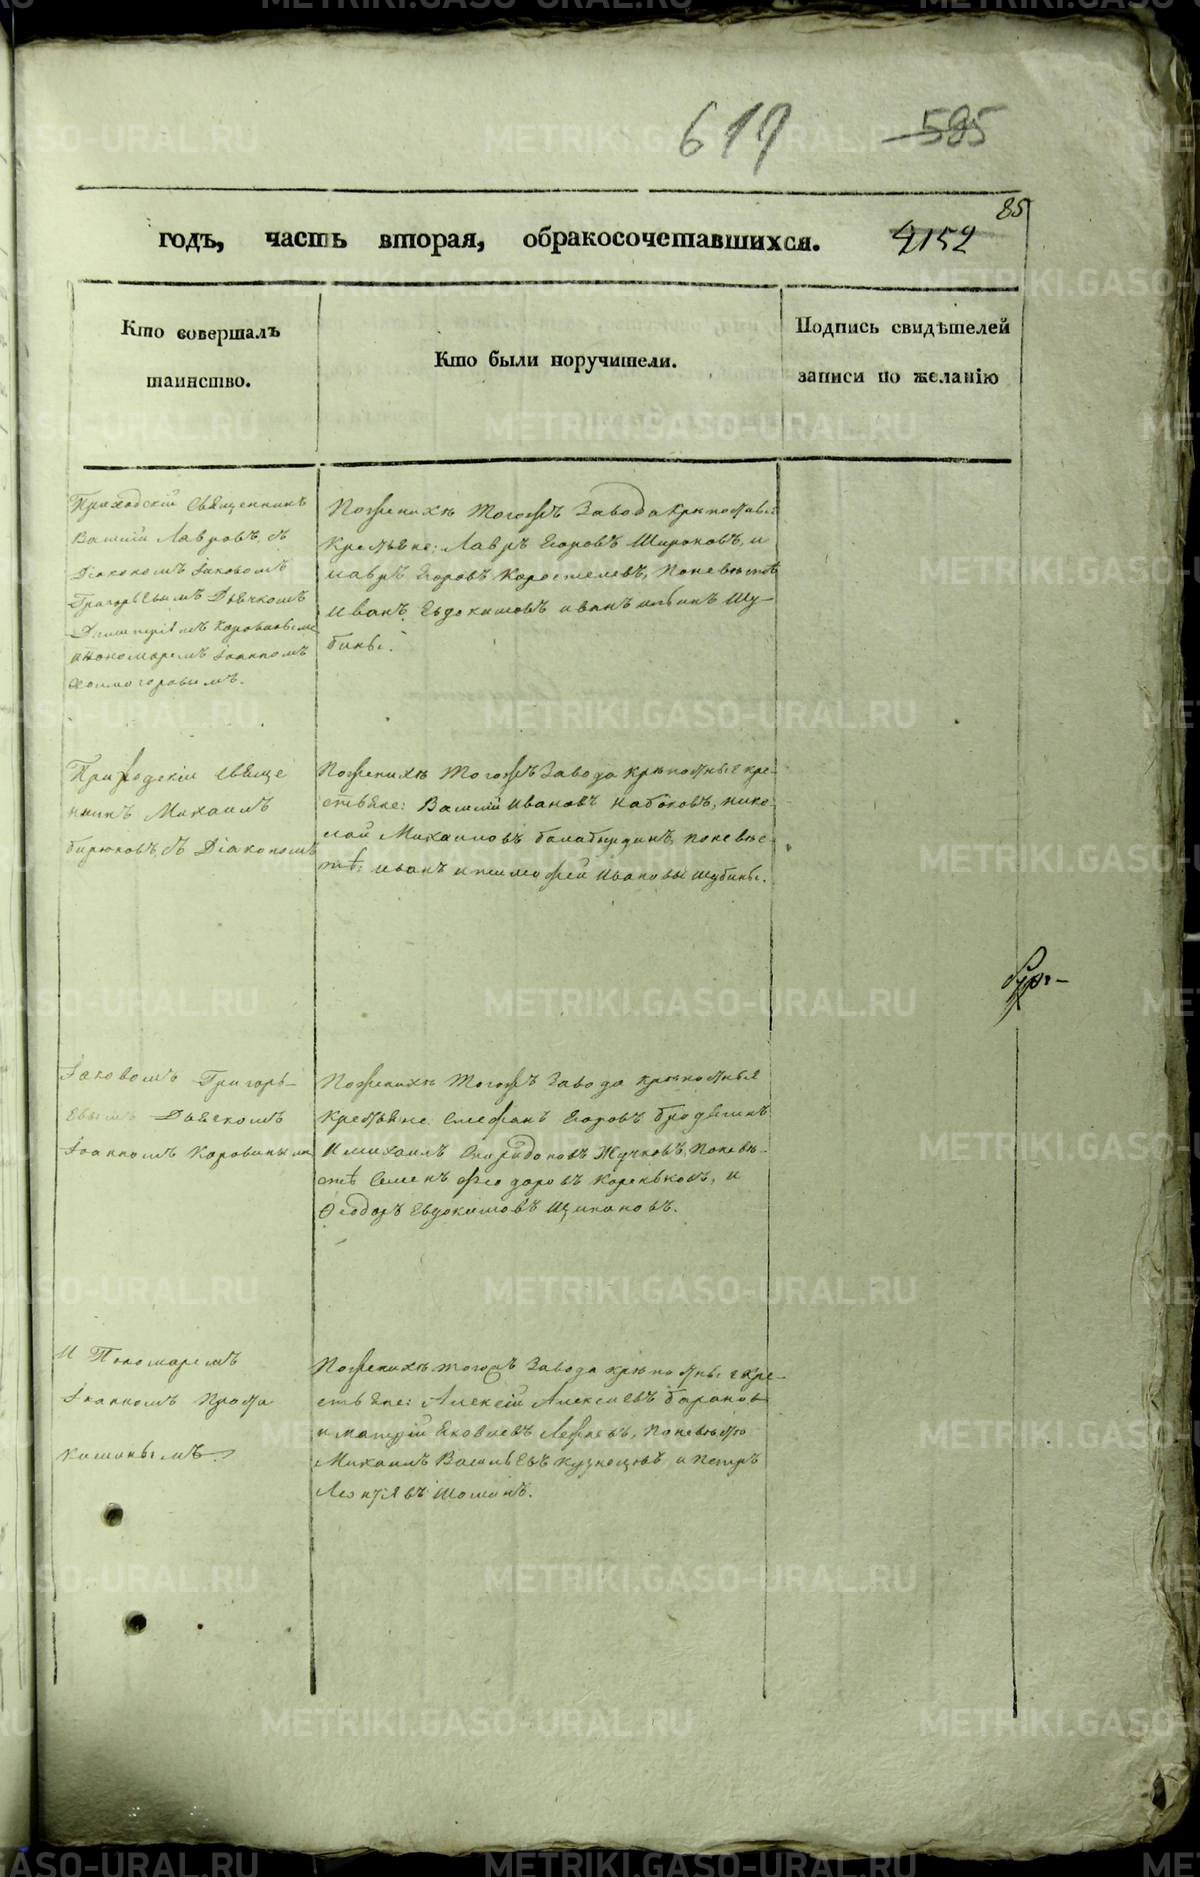 617 585
85
годъ, часть вторая, обракосочетавшихся. 4152
Кто совершалъ
таинство.
Кто были поручители.
Подпись свидѣтелей
записи по желанію
Приходскій Священникъ
Василій Лавровъ, съ
Діакономъ Іаковомъ
Григорьевымъ Дьячкомъ
Коровинымъ
пономаремъ Іоанномъ
Пожениху тогожъ Завода Крѣпостныя
Крестьяне: Лавръ Егоровъ Широковъ, и
Лавръ Егоровъ Коростелевъ, Поневѣстѣ
Иванъ Евдокимовъ иванъ ильинъ Шу-
бины.
Приходскій Свяще
нникъ Михаилъ
бирюковъ, съ Діакономъ
Пожениху тогожъ Завода крѣпостные кре-
стьяне: Василій Ивановъ Набоковъ, нико-
лай Михаиловъ балабурдинъ, поневѣс-
тѣ: иванъ итимофей Ивановы шубины.
Іаковомъ Григорь-
евымъ Дьячкомъ
Іоанномъ Коровинымъ
Пожениху Тогожъ Завода крѣпостныя
Крестьяне Стефанъ Егоровъ
Имихаилъ Спиридоновъ Жучковъ, Поневѣ-
стѣ Семенъ федоровъ Кореньковъ, и
Феодоръ Евдокимовъ Щипановъ.
И Пономаремъ
Іоанномъ
Пожениху тогожъ Завода крѣпостные кре-
стьяне: Алексій Алексѣевъ барановъ
и матфій Яковлевъ Лежневъ, Поневѣстѣ
Михаилъ Васильевъ кузнецовъ, и Петръ
Леонтьевъ Шоминъ.
METRIKI.GASO-URAL.RU